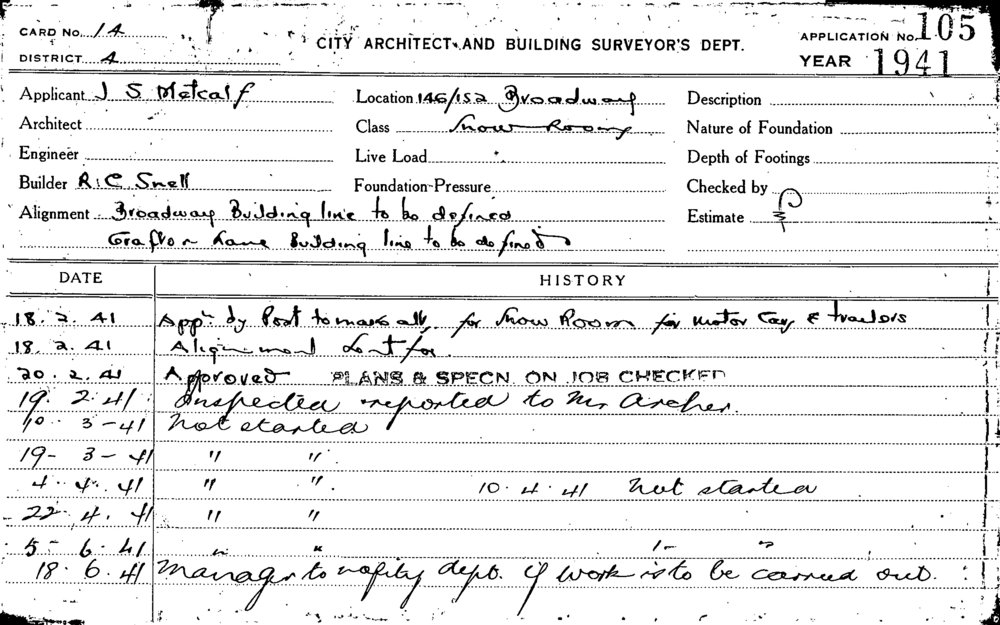 CARD No. 14
DISTRICT 4
CITY ARCHITECT AND BUILDING SURVEYOR'S DEPT.
APPLICATION No. 105
YEAR 1941
Applicant J S Metcalf
Architect
Engineer
Builder R.C. Snell
Location 146/152 Broadway
Class Show Room
Live Load
Foundation-Pressure
Description
Nature of Foundation
Depth of Footings
Checked by
Estimate
Alignment Broadway Building line to be defined
Grafton Lane Building line to be defined
DATE HISTORY
18. 2. 41 Appn by Post to make alt. for Show Room for Motor Cars & trailers
18. 2. 41 Alignment sent for
20. 2. 41 Approved PLANS & SPECN. ON JOB CHECKED
19. 2. 41 Inspected reported to Mr Archer.
10. 3-41 Not started
19- 3-41 " "
4. 4. 41 " " 10. 4. 41 Not started
22. 4. 41 " "
5- 6. 41 " " " "
18. 6. 41 Manager to notify dept. if work is to be carried out.